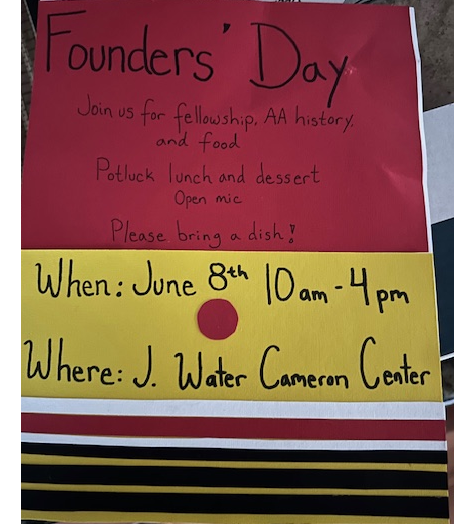 Founders' Day
Join us for fellowship, AA history,
and food
Potluck lunch and dessert
Open mic
Please bring a dish!
When: June 8th 10am-4pm
Where: J. Water Cameron Center